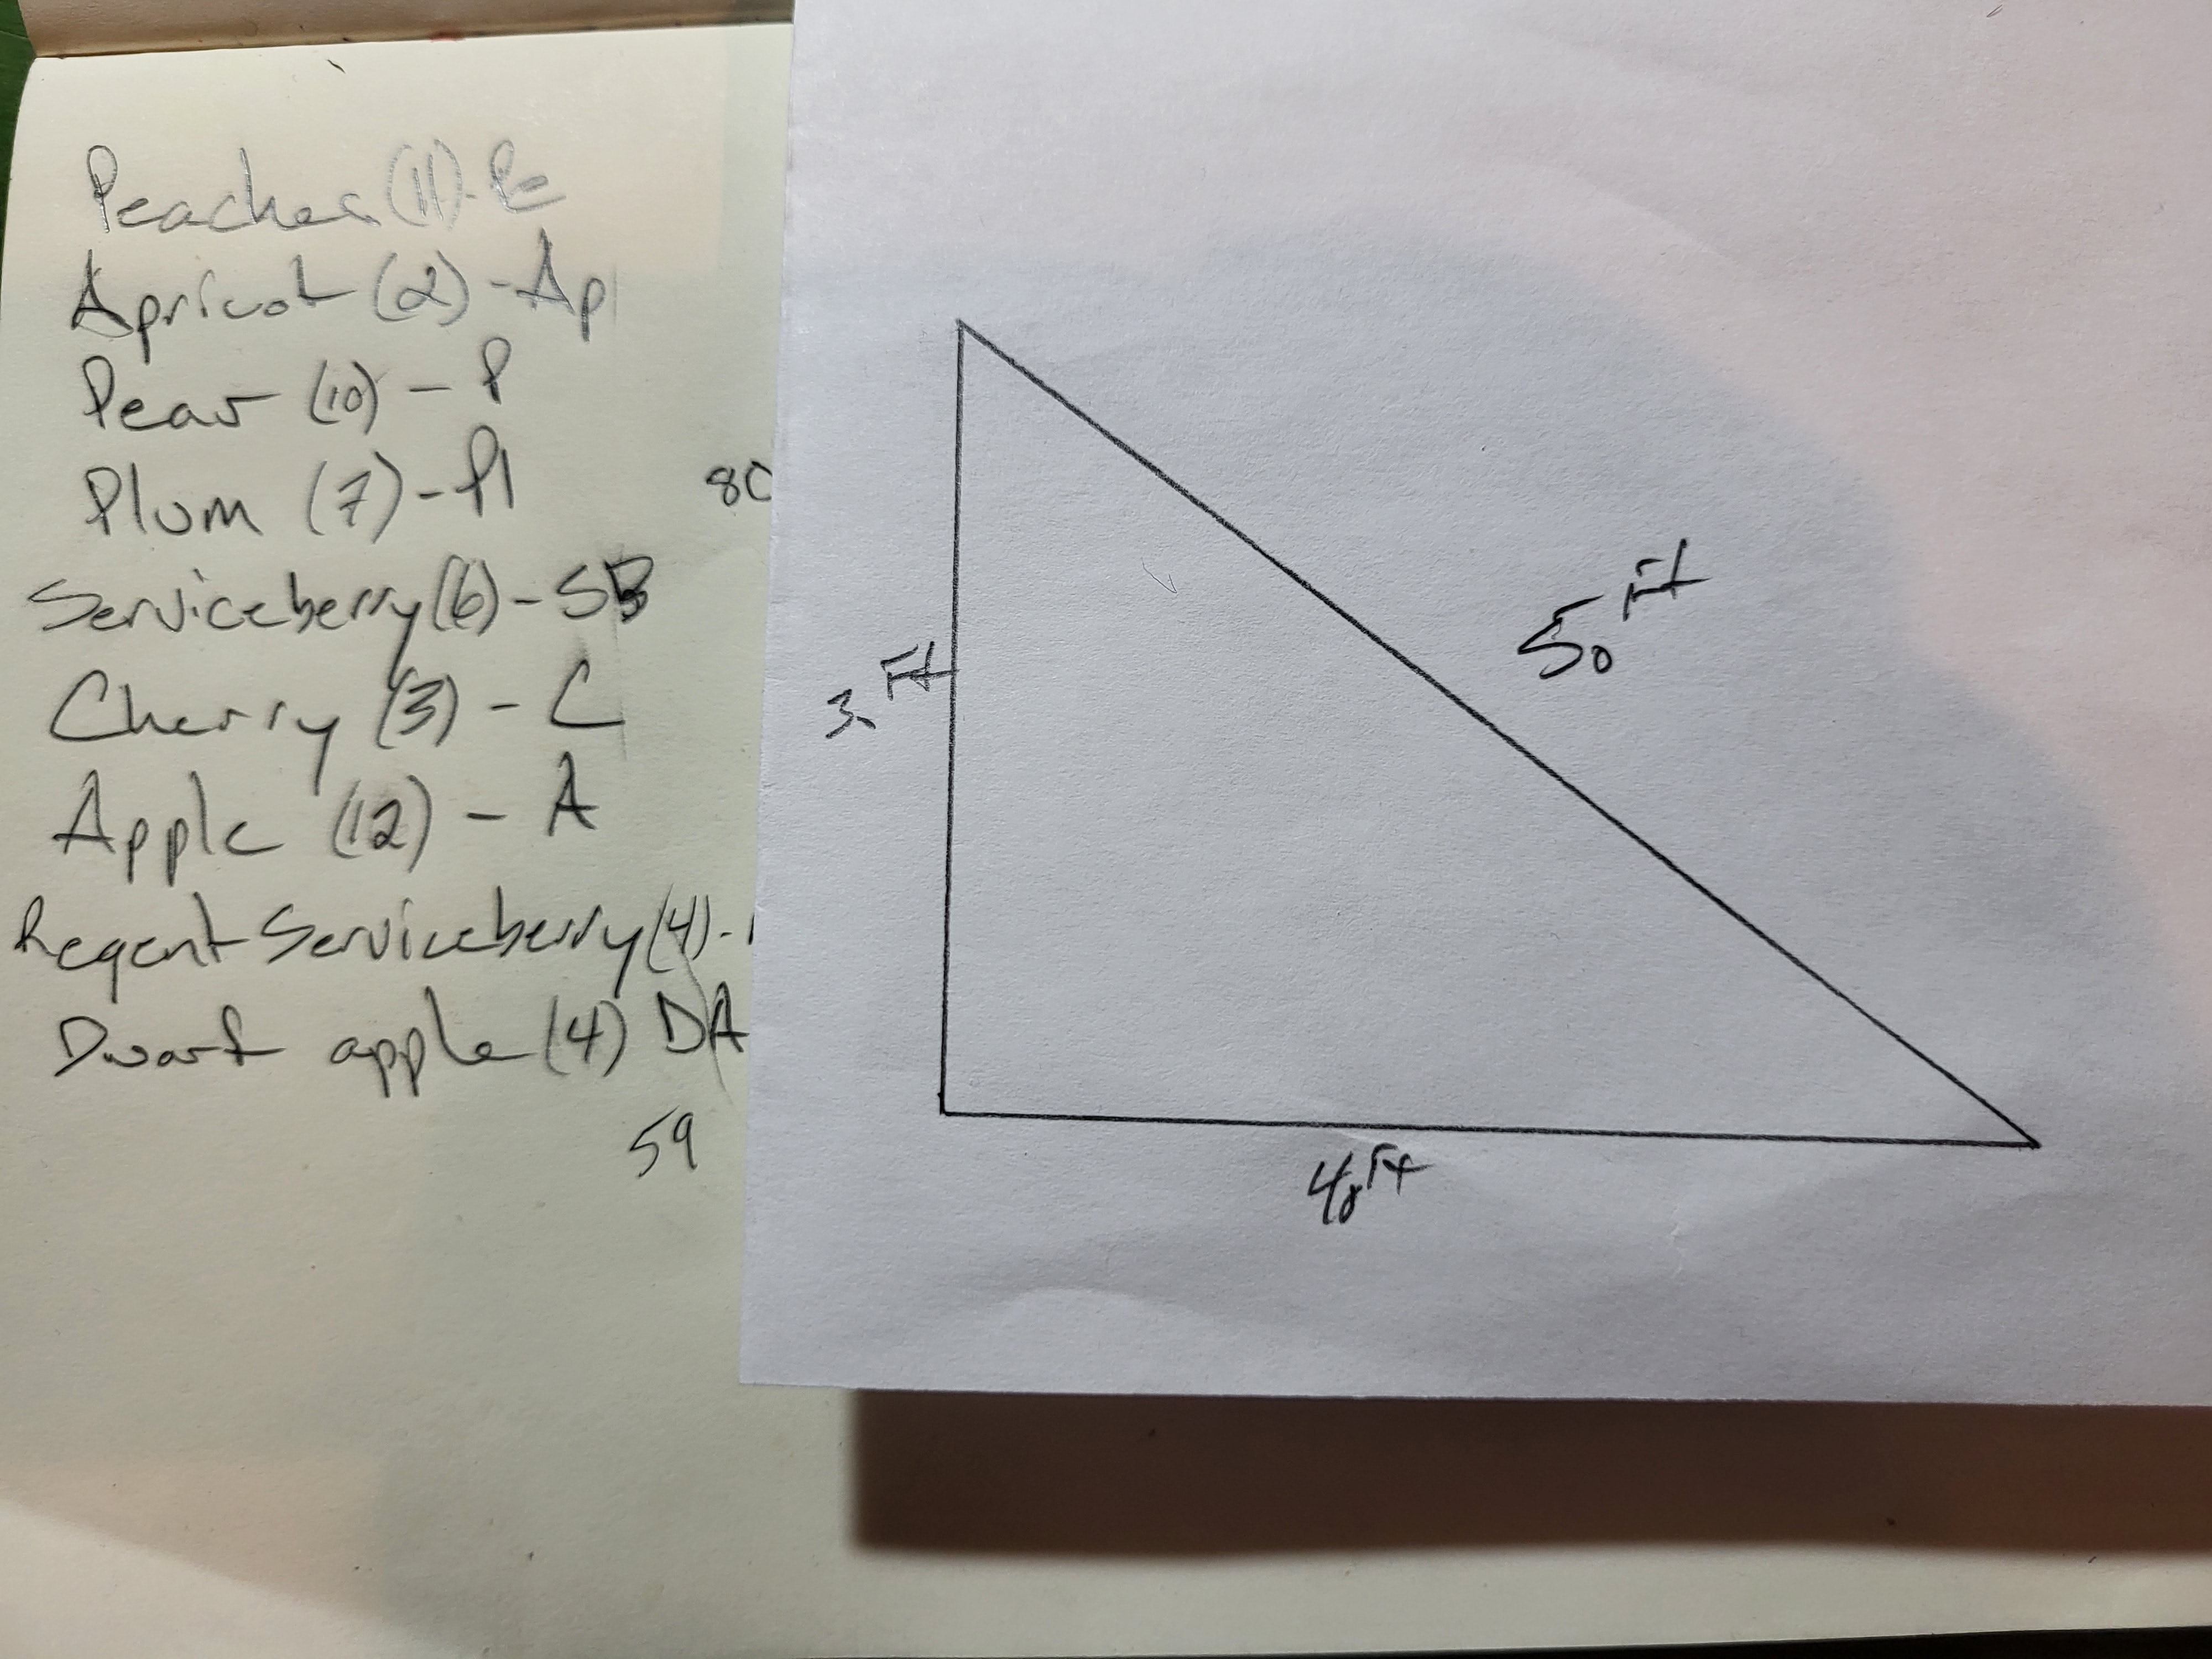 Peaches (11) - Pe
Apricot (2) - Ap
Pear (10) - P
Plum (7) - Pl
80
Serviceberry (6) - SB
Cherry (3) - C
Apple (12) - A
Regent Serviceberry (4) -
Dwarf apple (4) DA
59
Ft
50 Ft
40 Ft